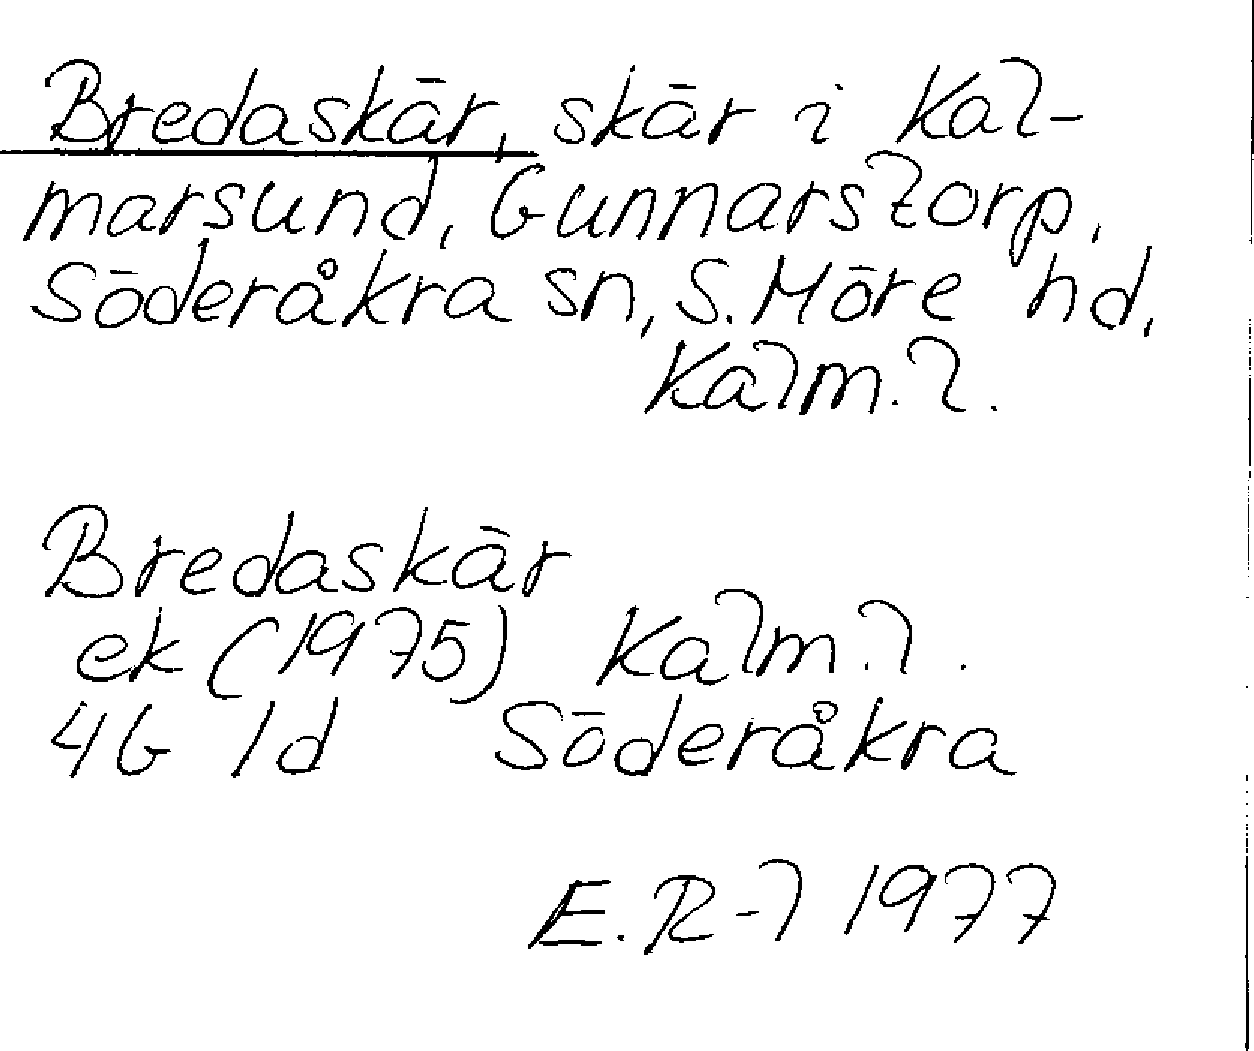 Bredaskär, skär i Kal-
marsund, Gunnarstorp,
Söderåkra sn, S. Möre hd,
Kalm. l.
Bredaskär
ek (1975) Kalm. l.
4G 1d Söderåkra
E. R-l 1977